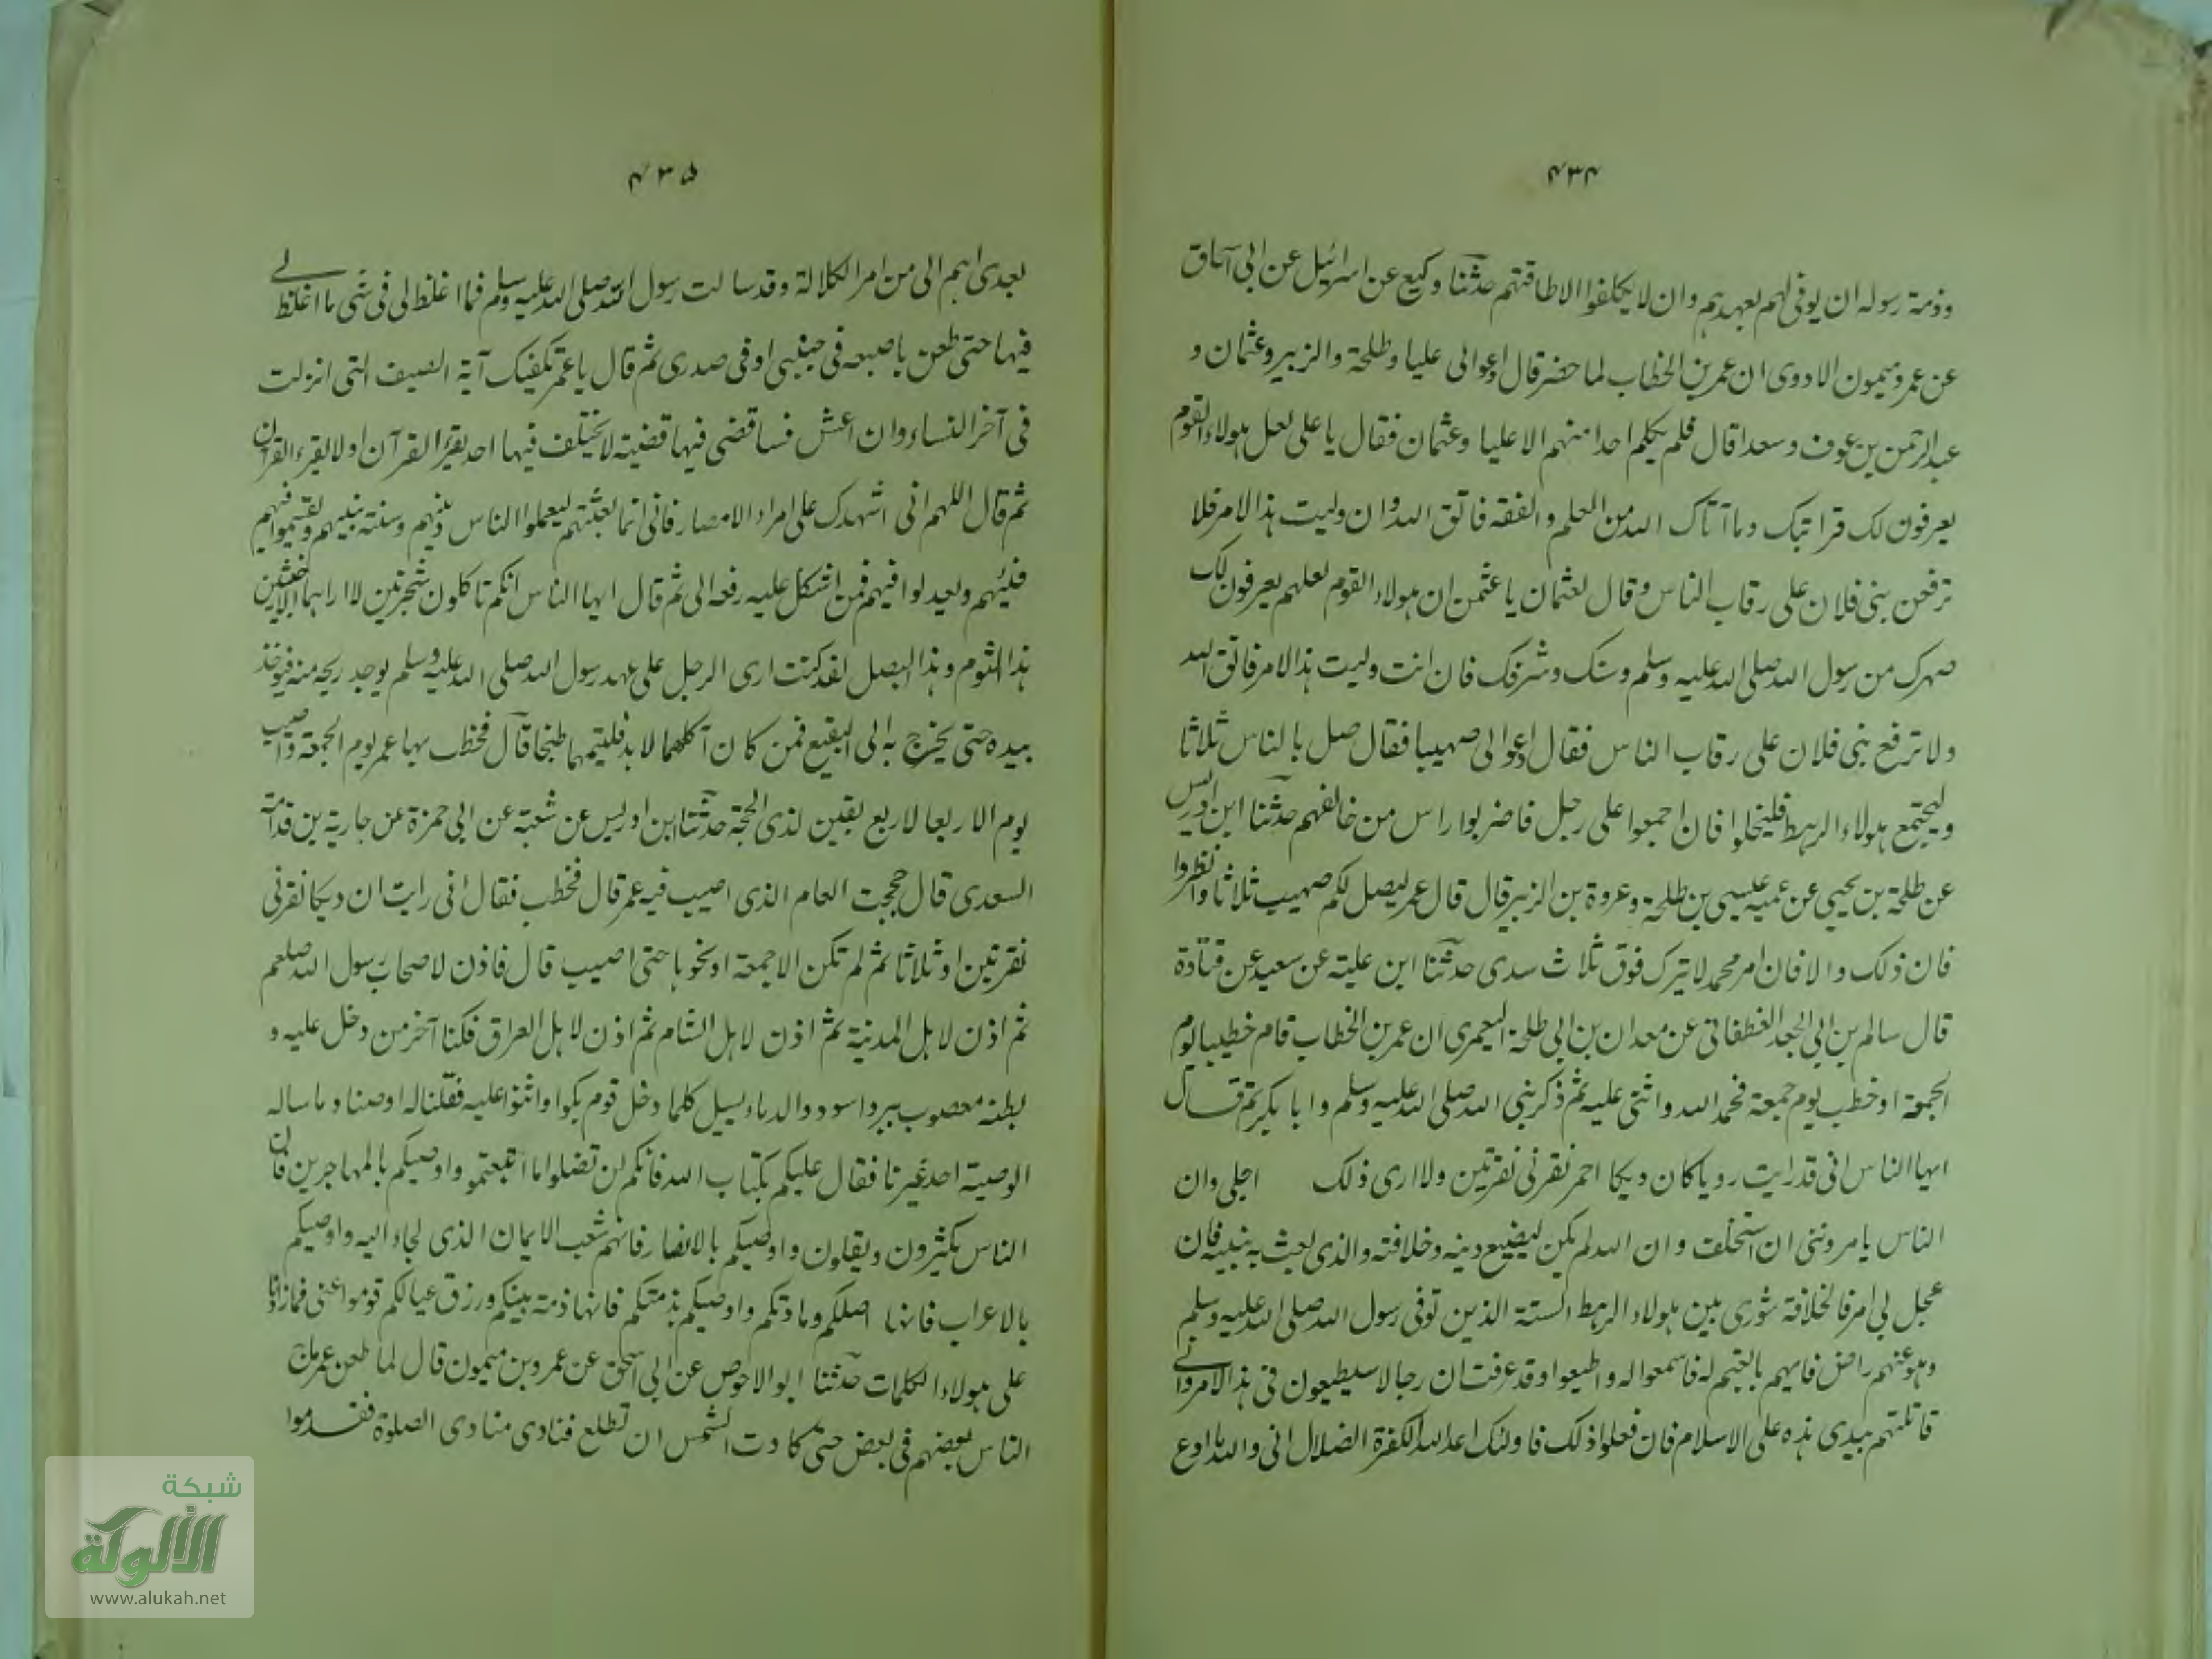 ۴۳۴
وذمة رسوله ان يوفى لهم بعهدهم وان لا يكلفوا الا طاقتهم حدثنا وكيع عن اسرائيل عن ابى اسحاق
عن عمرو ميمون الاودى ان عمر بن الخطاب لما حضر قال ادعوا لى عليا وطلحة والزبير وعثمان و
عبد الرحمن بن عوف وسعدا قال فلم يكلم احدا منهم الا عليا وعثمان فقال يا على لعل هولاء القوم
يعرفون لك قرابتك وما آتاك الله من العلم والفقه فاتق الله وان وليت هذا الامر فلا
ترفعن بنى فلان على رقاب الناس وقال لعثمان يا عثمن ان هولاء القوم لعلهم يعرفون لك
صهرك من رسول الله صلى الله عليه وسلم وسنك وشرفك فان انت وليت هذا الامر فاتق الله
ولا ترفع بنى فلان على رقاب الناس فقال ادعوا لى صهيبا فقال صل بالناس ثلاثا
وليجتمع هولاء الرهط فليخلوا فان اجمعوا على رجل فاضربوا راس من خالفهم حدثنا ابن ادريس
عن طلحة بن يحيى عن عميه عيسى بن طلحة وعروة بن الزبير قال قال عمر ليصل لكم صهيب ثلاثا وانظروا
فان ذلك والا فان امر محمد لا يترك فوق ثلاث سدى حدثنا ابن علية عن سعيد عن قتادة
قال سالم بن ابى الجعد الغطفانى عن معدان بن ابى طلحة اليعمرى ان عمر بن الخطاب قام خطيبا يوم
الجمعة او خطب يوم جمعة فحمد الله واثنى عليه ثم ذكر نبى الله صلى الله عليه وسلم وابا بكر ثم قال
ايها الناس انى قد رايت رويا كان ديكا احمر نقرنى نقرتين ولا ارى ذلك اجلى وان
الناس يامروننى ان استخلف وان الله لم يكن ليضيع دينه وخلافته والذى بعث به نبيه فان
عجل بى امر فالخلافة شورى بين هولاء الرهط الستة الذين توفى رسول الله صلى الله عليه وسلم
وهو عنهم راض فايهم بايعتم له فاسمعوا له واطيعوا وقد عرفت ان رجالا سيطيعون فى هذا الامر وانى
قاتلتهم بيدى هذه على الاسلام فان فعلوا ذلك فاولئك اعداء الله الكفرة الضلال انى والله ما ادع
۴۳۵
بعدى اهم الى من امر الكلالة وقد سالت رسول الله صلى الله عليه وسلم فما اغلظ لى فى شى ما اغلظ لى
فيها حتى طعن باصبعه فى جنبى او فى صدرى ثم قال يا عمر تكفيك آية الصيف التى انزلت
فى آخر النساء وان اعش فساقضى فيها قضية لا يختلف فيها احد يقرء القرآن او لا يقرء القرآن
ثم قال اللهم انى اشهدك على امراء الامصار فانى انما بعثتهم ليعلموا الناس دينهم وسنة نبيهم ويقسموا فيهم
فيئهم ويعدلوا فيهم فمن اشكل عليه رفعه الى ثم قال ايها الناس انكم تاكلون شجرتين لا اراهما الا خبيثتين
هذا الثوم وهذا البصل لقد كنت ارى الرجل على عهد رسول الله صلى الله عليه وسلم يوجد ريحه منه فيوخذ
بيده حتى يخرج به الى البقيع فمن كان آكلهما لا بد فليتمهما طبخا قال فخطب بها عمر يوم الجمعة واصيب
يوم الاربعا لاربع بقين لذى الحجة حدثنا ابن ادريس عن شعبة عن ابى حمزة عن جارية بن قدامة
السعدى قال حججت العام الذى اصيب فيه عمر قال فخطب فقال انى رايت ان ديكا نقرنى
نقرتين او ثلاثا ثم لم تكن الا جمعة او نحوها حتى اصيب قال فاذن لاصحاب رسول الله صلعم
ثم اذن لاهل المدينة ثم اذن لاهل الشام ثم اذن لاهل العراق فكنا آخر من دخل عليه و
بطنه معصوب ببرد اسود والدماء يسيل كلما دخل قوم بكوا واثنوا عليه فقلنا له اوصنا وما ساله
الوصية احد غيرنا فقال عليكم بكتاب الله فانكم لن تضلوا ما اتبعتموه واوصيكم بالمهاجرين فان
الناس يكثرون ويقلون واوصيكم بالانصار فانهم شعب الايمان الذى لجاء اليه واوصيكم
بالاعراب فانها اصلكم ومادتكم واوصيكم بذمتكم فانها ذمة نبيكم ورزق عيالكم قوموا عنى فما زادنا
على هولاء الكلمات حدثنا ابو الاحوص عن ابى اسحق عن عمرو بن ميمون قال لما طعن عمر ماج
الناس بعضهم فى بعض حتى كادت الشمس ان تطلع فنادى منادى الصلوة فقدموا
شبكة
الألوكة
www.alukah.net